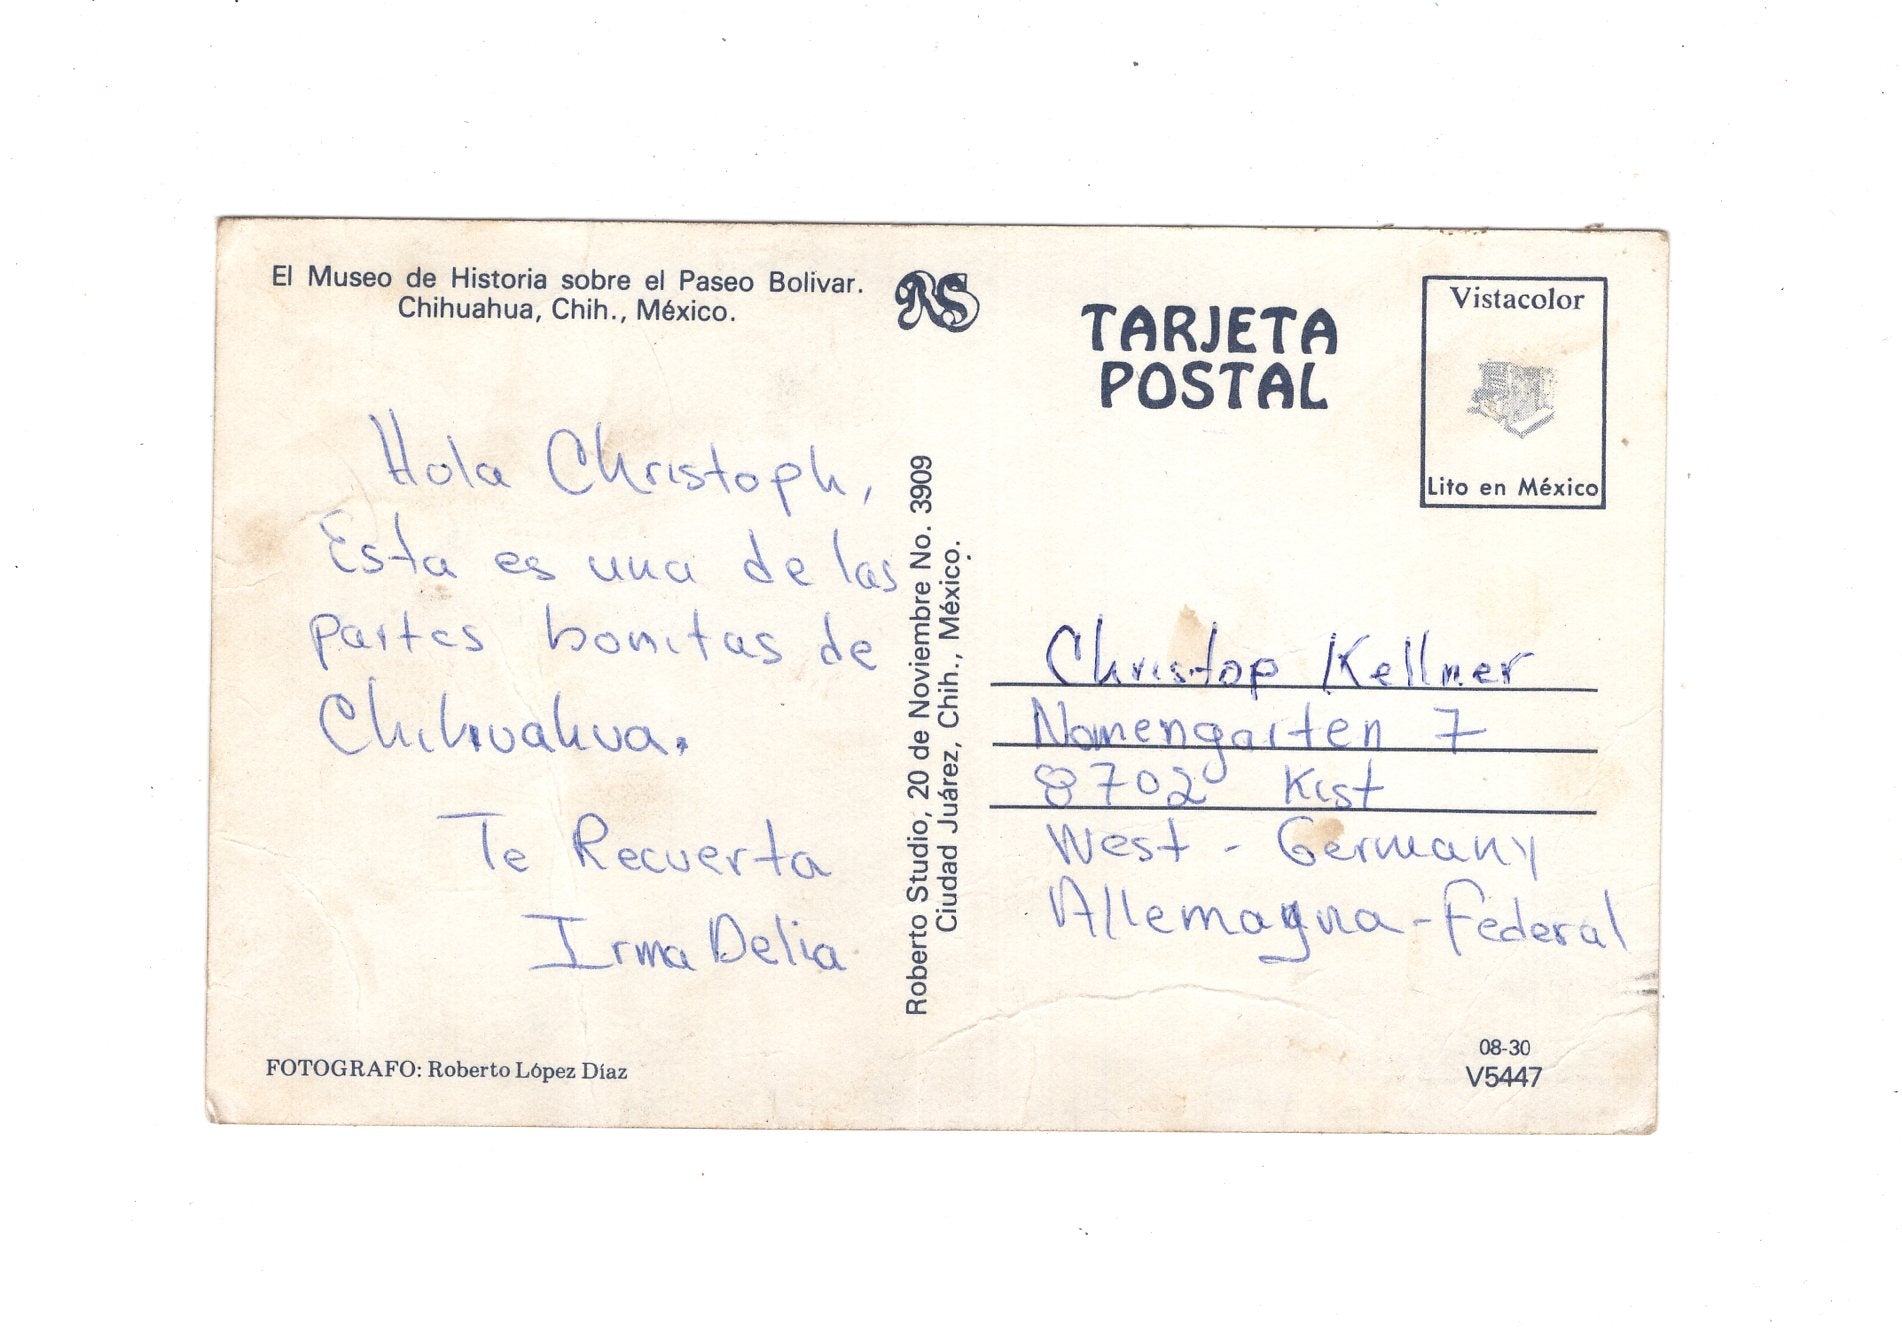 El Museo de Historia sobre el Paseo Bolivar.
Chihuahua, Chih., México.
RS
TARJETA
POSTAL
Vistacolor
Lito en México
Hola Christoph,
Esta es una de las
partes bonitas de
Chihuahua.
Te Recuerta
Irma Delia
FOTOGRAFO: Roberto López Díaz
Roberto Studio, 20 de Noviembre No. 3909
Ciudad Juárez, Chih., México.
Christop Kellner
Nomengarten 7
8702 Kist
West - Germany
Allemagna - Federal
08-30
V5447